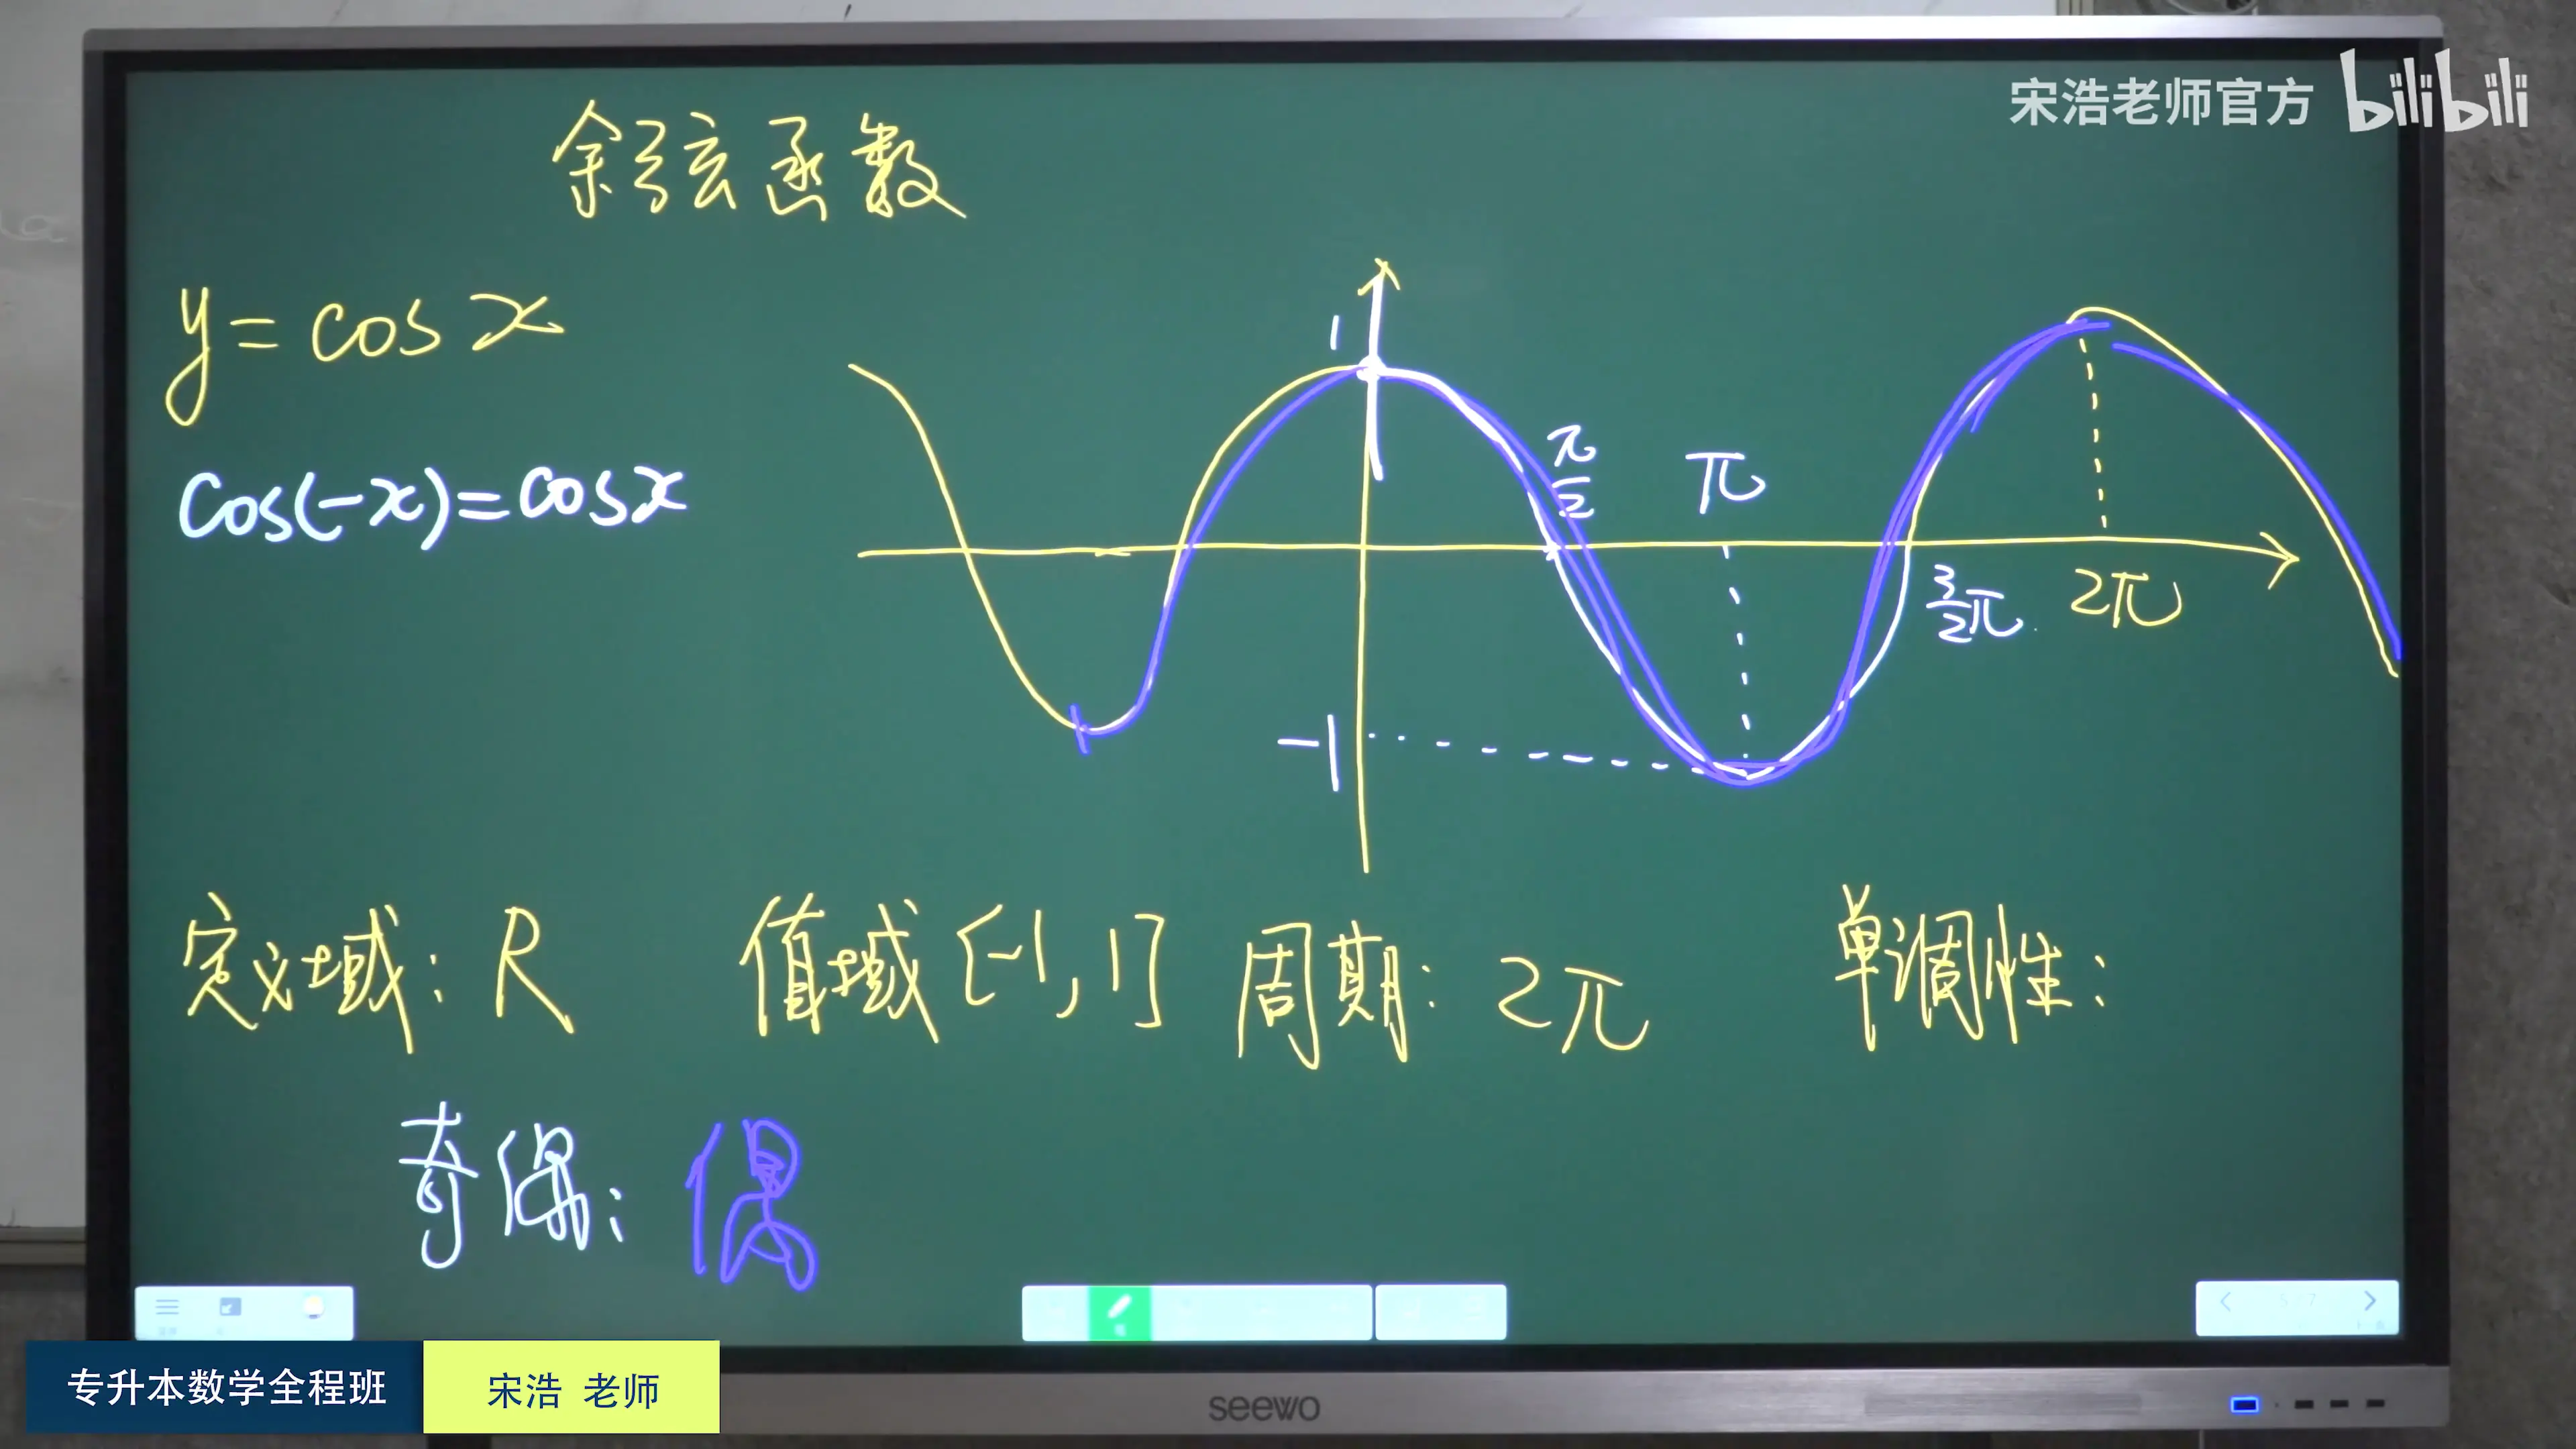 宋浩老师官方 bilibili
余弦函数
y=cosx
cos(-x)=cosx
1
π/2
π
3/2π
2π
-1
定义域:R 值域[-1,1] 周期:2π 单调性:
奇偶:偶
专升本数学全程班 宋浩 老师
seewo